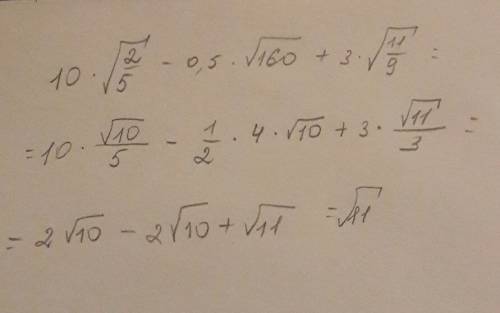 10 · √(2/5) - 0,5 · √160 + 3 · √(11/9) =
= 10 · √10/5 - 1/2 · 4 · √10 + 3 · √11/3 =
= 2√10 - 2√10 + √11 = √11